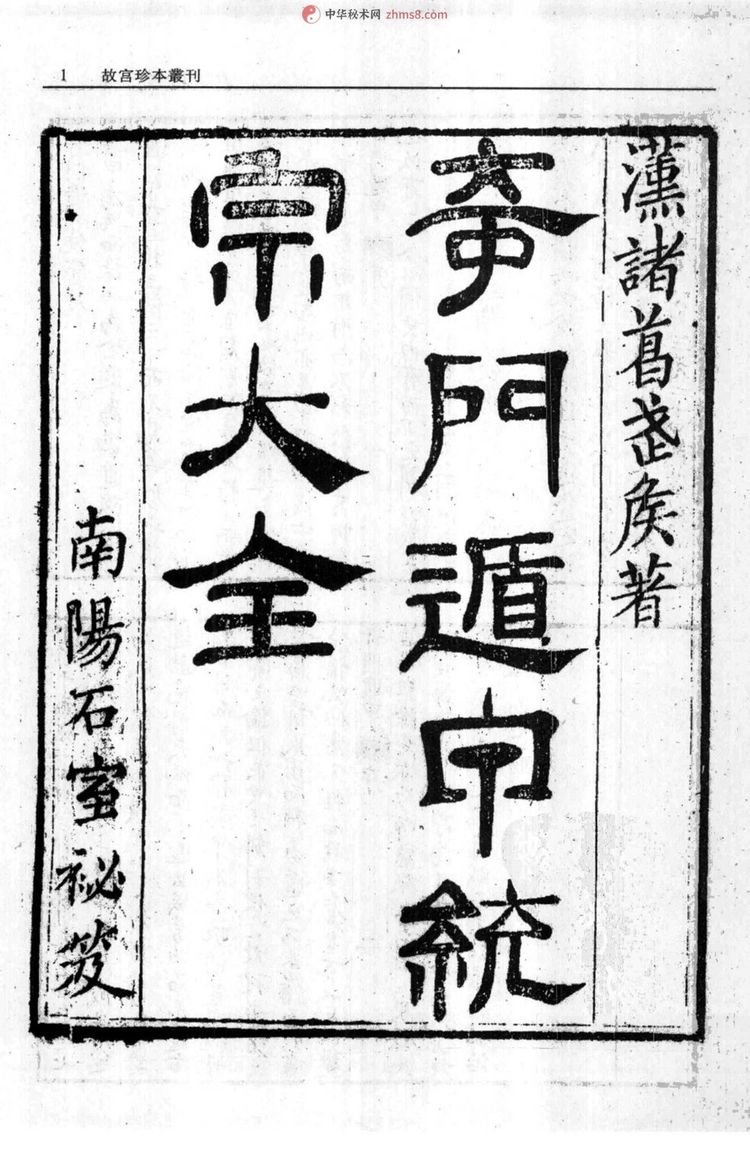 中华秘术网 zhms8.com
1 故宫珍本叢刊
漢諸葛武侯著
奇門遁甲統
宗大全
南陽石室秘笈